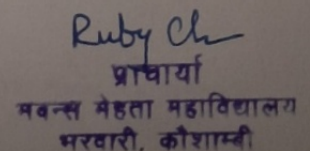 Ruby Ch
प्राचार्या
भवन्स मेहता महाविद्यालय
भरवारी, कौशाम्बी